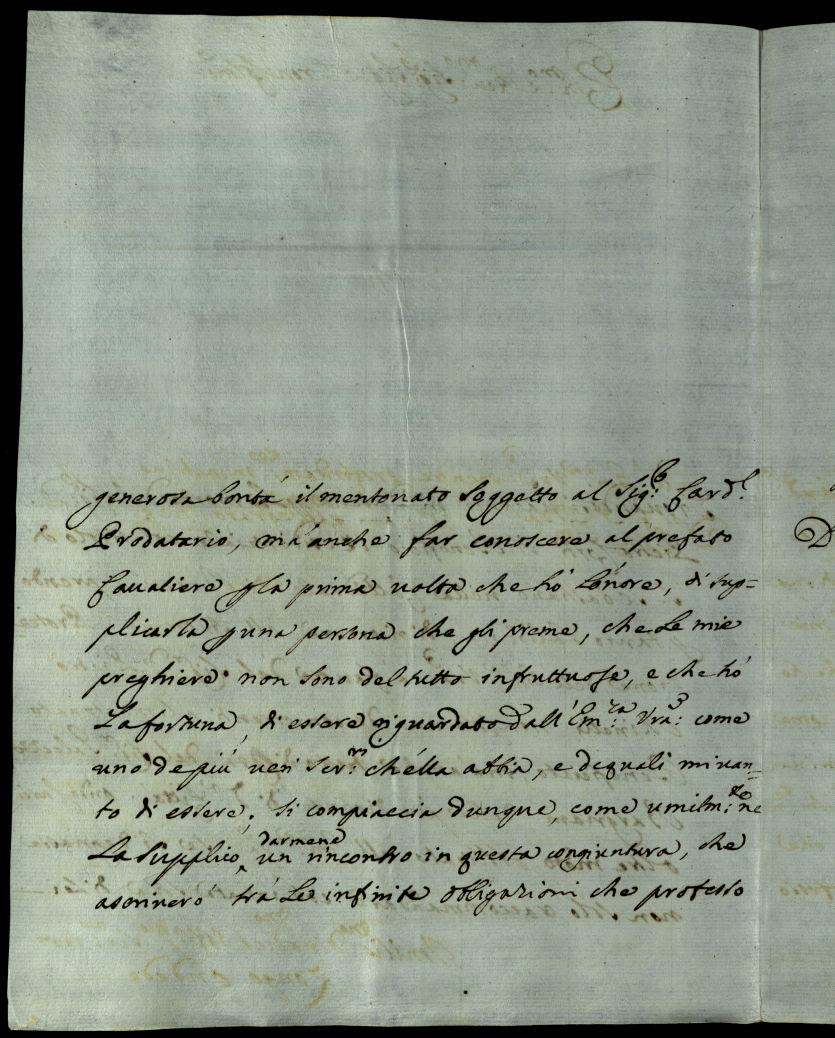 generosa bontá il mentonato Soggetto al Sig:r Card:l
Prodatario, má anche far conoscere al prefato
Cavaliere p la prima uolta che hó l'onore, di sup=
plicarla p una persona che gli preme, che le mie
preghiere non sono del tutto infruttuose, e che hó
la fortuna, di essere riguardato dall'Em:za Vra: come
uno de piú ueri Ser:ri ch'ella abbia, e de quali mi uan=
to di essere. Si compiaccia dunque, come umilm:te ne
la Supplico, darmene un rincontro in questa congiuntura, che
ascriueró trá le infinite obligazioni che professo
D